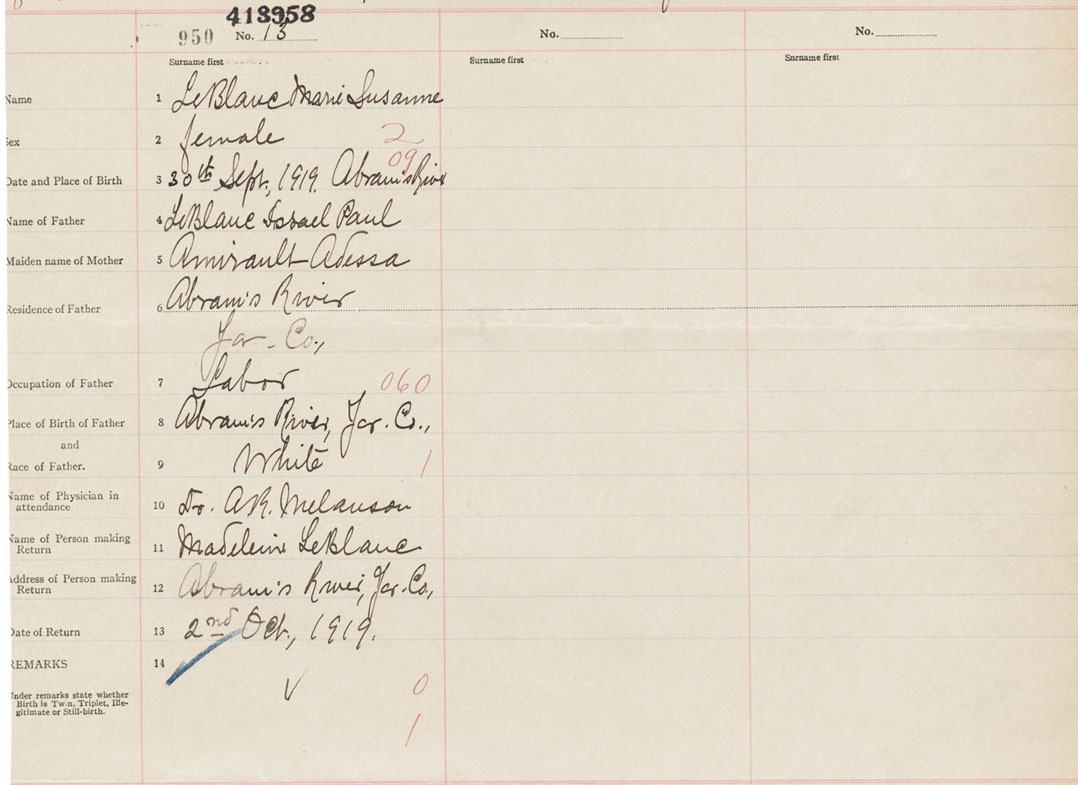 413958
950 No. 13 No. No.
Surname first Surname first Surname first
Name 1 LeBlanc Marie Susanne
Sex 2 female 2
09
Date and Place of Birth 3 30th Sept., 1919. Abram's River
Name of Father 4 LeBlanc Israel Paul
Maiden name of Mother 5 Amirault Adessa
Residence of Father 6 Abram's River
Yar. Co.,
Occupation of Father 7 Labor 060
Place of Birth of Father 8 Abram's River, Yar. Co.,
and
Race of Father. 9 White 1
Name of Physician in
attendance 10 Dr. A.R. Melanson
Name of Person making
Return 11 Madeleine LeBlanc
Address of Person making
Return 12 Abram's River, Yar. Co.,
Date of Return 13 2nd Oct., 1919.
REMARKS 14
Under remarks state whether
Birth is Twin, Triplet, Ille-
gitimate or Still-birth.
0
1